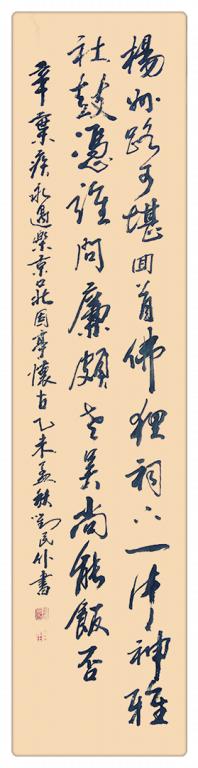 楊州路可堪囬首佛狸祠下一片神雅
社鼓憑誰問廉頗老矣尚能飯否
辛棄疾永遇樂京口北固亭懷古乙未孟秋劉民書